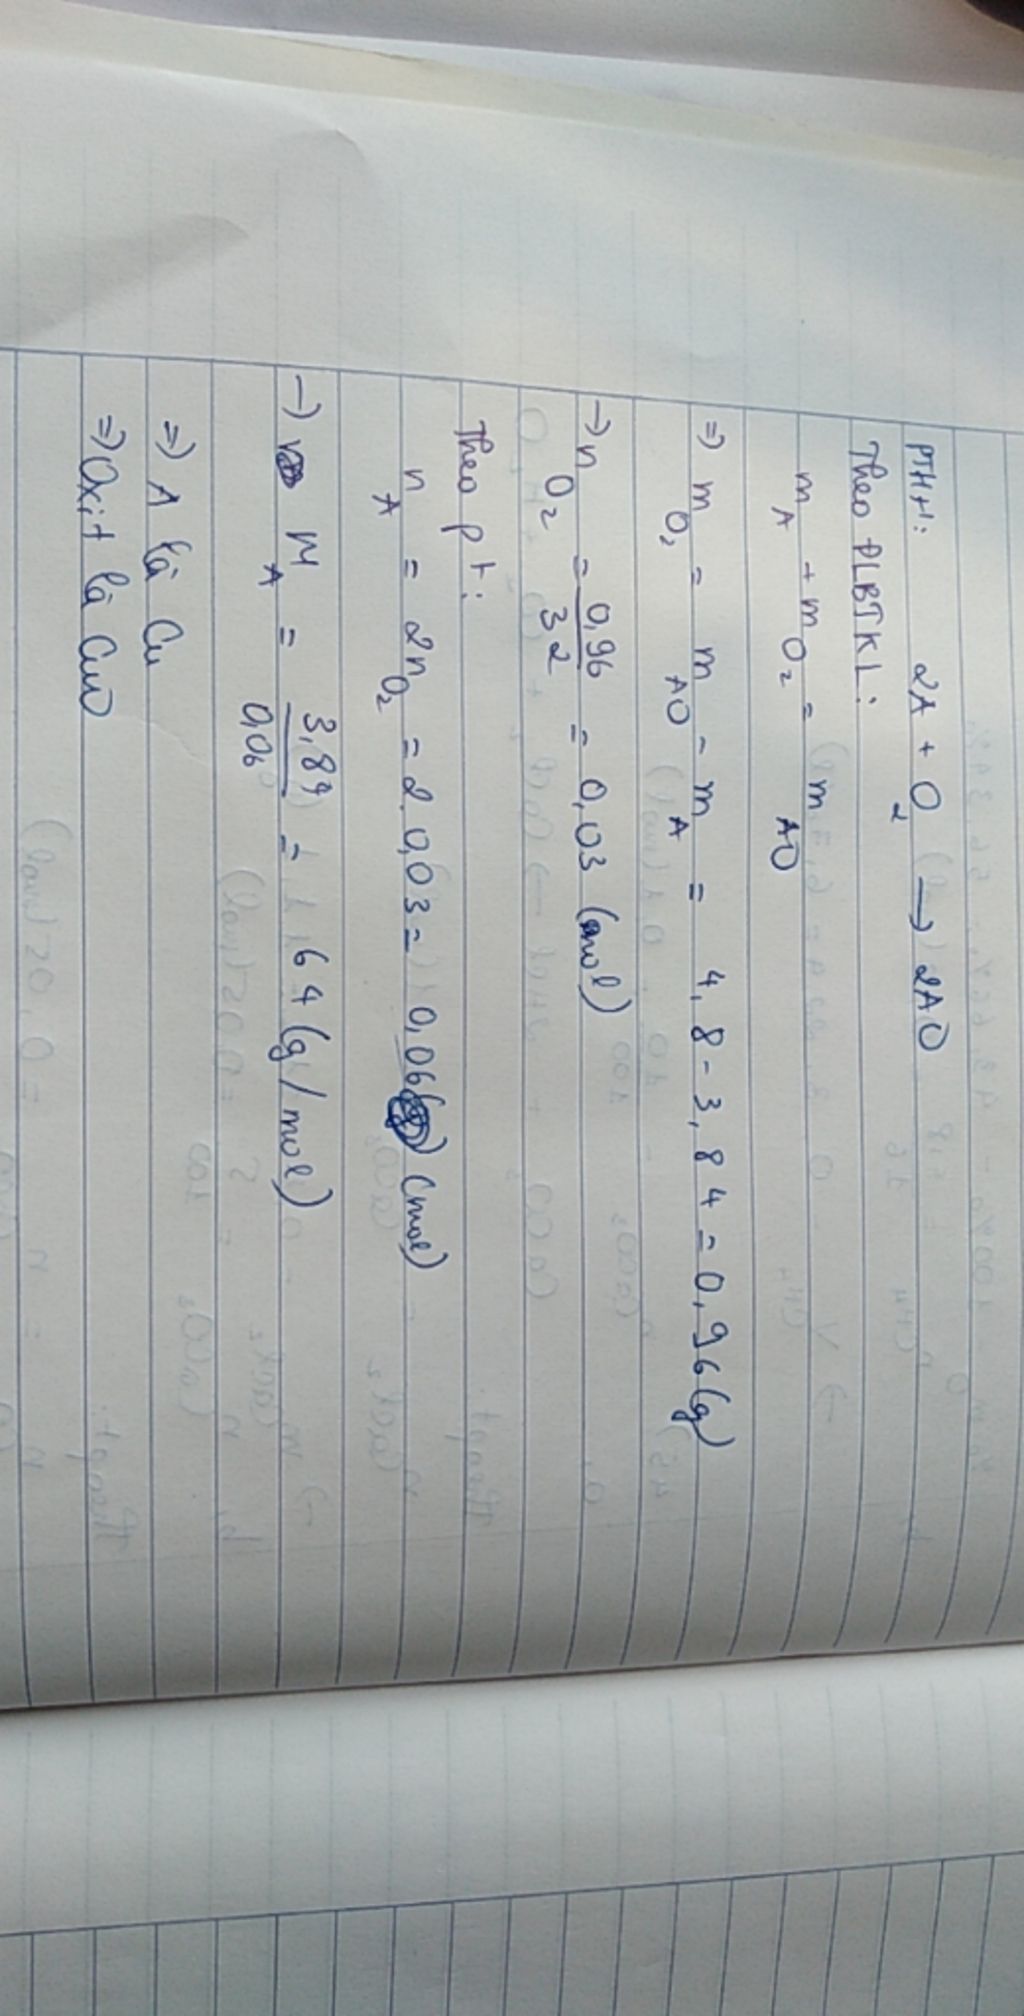 PTHH: 2A + O₂ → 2AO
Theo ĐLBTKL:
m_A + m_O₂ = m_AO
⇒ m_O₂ = m_AO - m_A = 4,8 - 3,84 = 0,96 (g)
→ n_O₂ = 0,96/32 = 0,03 (mol)
Theo pt:
n_A = 2n_O₂ = 2.0,03 = 0,06 (mol)
→ M_A = 3,84/0,06 = 64 (g/mol)
⇒ A là Cu
⇒ Oxit là CuO